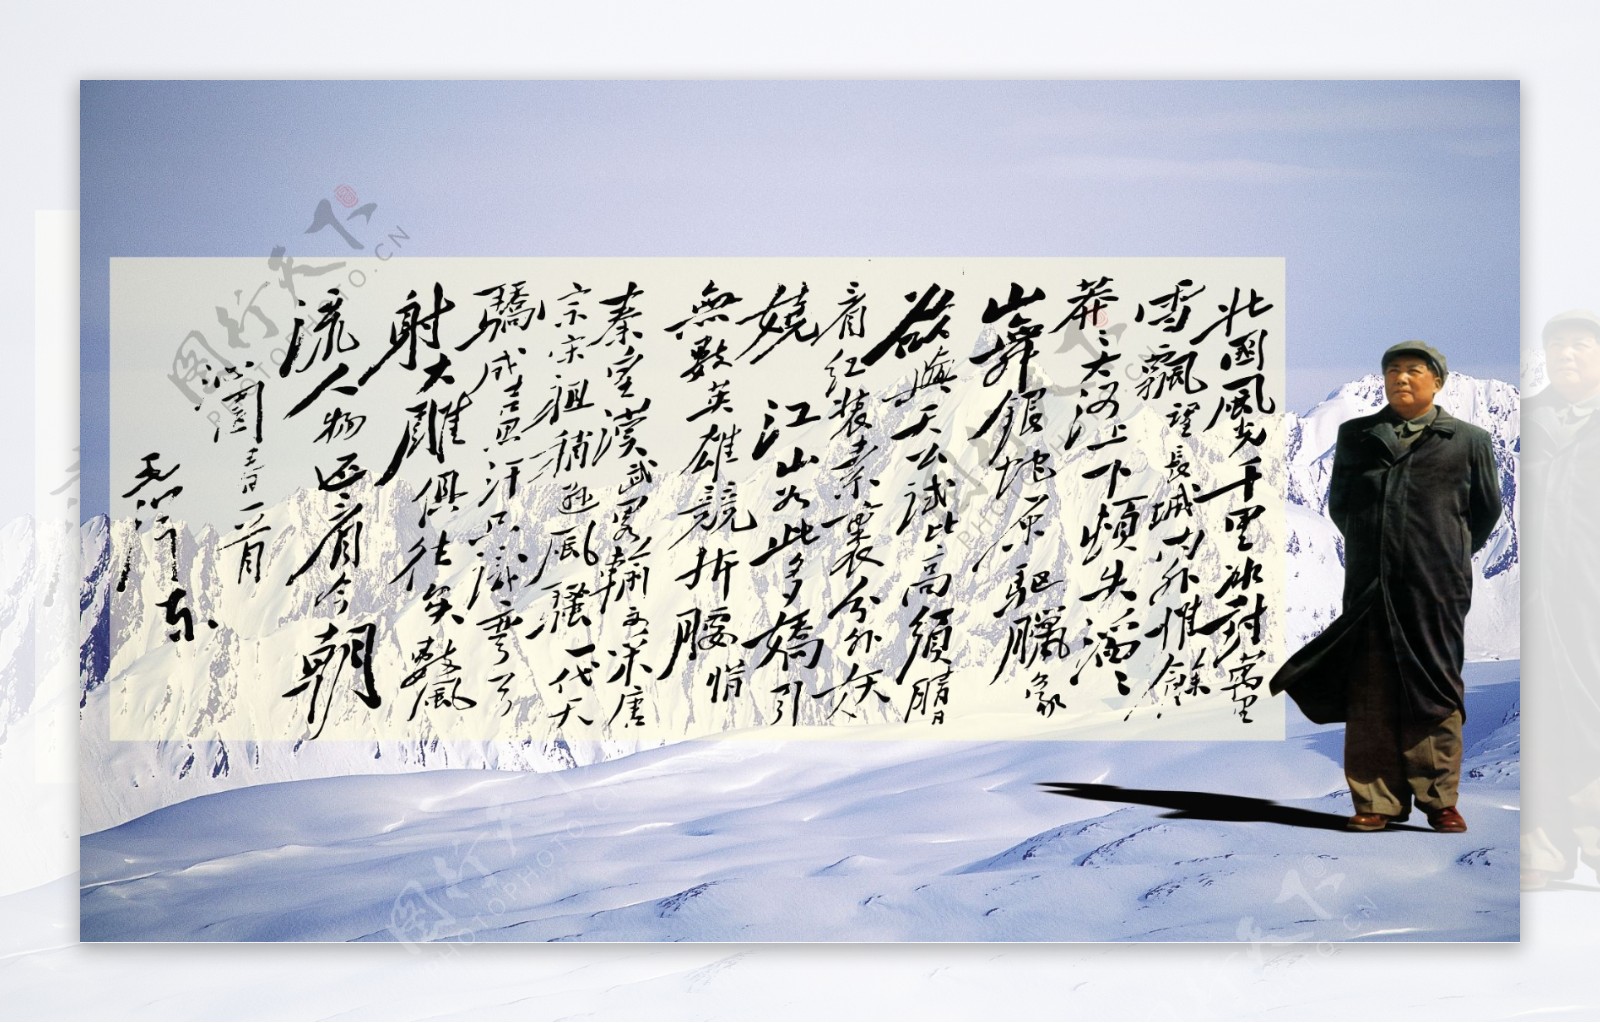 北國風光千里冰封萬里
雪飄望長城內外惟餘
莽〻大河上下頓失滔〻
山舞銀蛇原驅臘象
欲與天公試比高須晴
看紅裝素裹分外妖
嬈 江山如此多嬌引
無數英雄競折腰惜
秦皇漢武略輸文采唐
宗宋祖稍遜風騷一代天
驕成吉思汗只識彎弓
射大雕俱往矣數風
流人物还看今朝
沁園春一首
毛澤东
图行天下
PHOTOPHOTO.CN